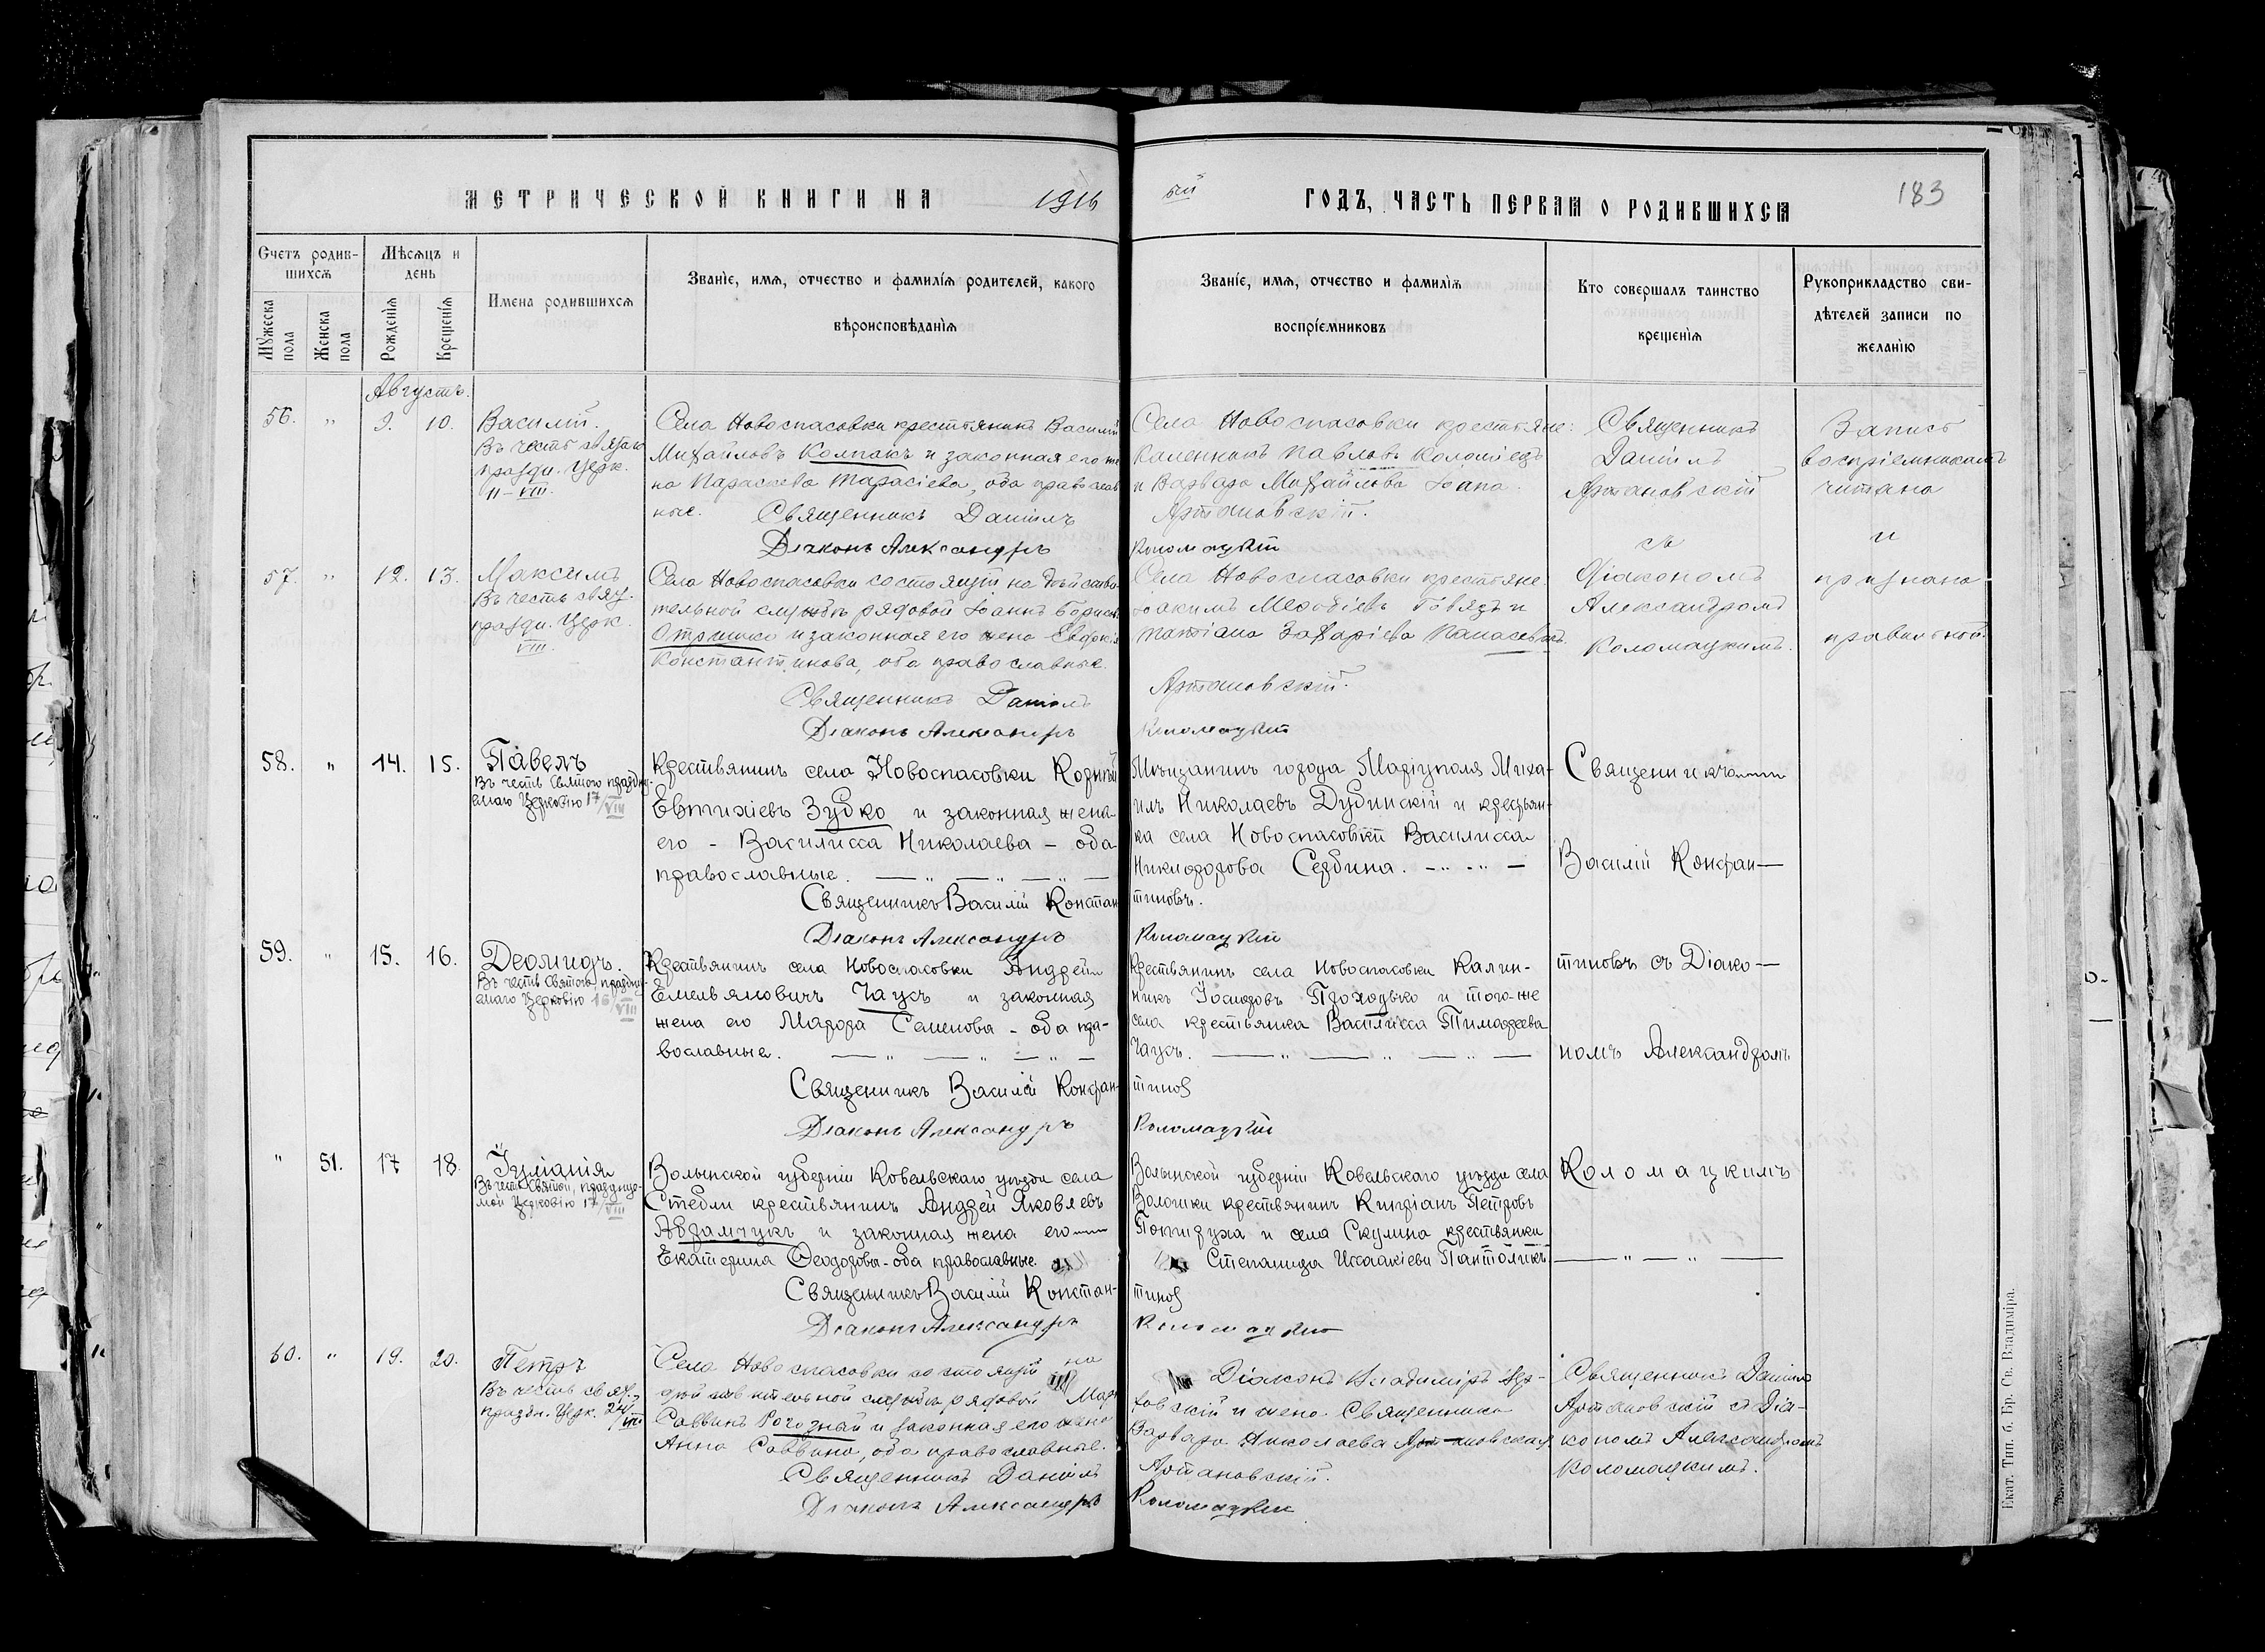 МЕТРИЧЕСКОЙ КНИГИ НА 1916
ый ГОДЪ, ЧАСТЬ ПЕРВАЯ О РОДИВШИХСЯ
183
Счетъ родив-
шихся
Мѣсяцъ и
день
Мужеска
пола
Женска
пола
Рожденія
Крещенія
Имена родившихся
Званіе, имя, отчество и фамилія родителей, какого
вѣроисповѣданія
Званіе, имя, отчество и фамилія
воспріемниковъ
Кто совершалъ таинство
крещенія
Рукоприкладство сви-
дѣтелей записи по
желанію
Августъ.
56. " 9. 10.
Василій.
Въ честь святаго
праздн. Церк.
11-VIII.
Села Новоспасовки крестьянинъ Василій
Михайловъ Колпакъ и законная его же
на Параскева Тарасіева, оба православ
ные. Священникъ Даніилъ
Діаконъ Александръ
Села Новоспасовки крестьяне:
Каленикъ Павловъ Коломіецъ
и Варвара Михайлова
Артановскій.
Коломацкій
Священникъ
Даніилъ
Артановскій
съ
Діакономъ
Александромъ
Коломацкимъ.
Запись
воспріемникамъ
читана
и
признана
правильной.
57. " 12. 13.
Максимъ
Въ честь свящ.
праздн. Церк.
VIII.
Села Новоспасовки состоящій на дѣйстви
тельной службѣ рядовой Іоаннъ Борисовъ
и законная его жена Евдокія
Константинова, оба православные.
Священникъ Даніилъ
Діаконъ Александръ
Села Новоспасовки крестьяне:
Іоакимъ Меѳодіевъ и
Татіана Захаріева
Артановскій.
Коломацкій
58. " 14. 15.
Павелъ
Въ честь Святого праздну-
емаго Церковію 17/VIII
Крестьянинъ села Новоспасовки Корнилій
Евтихіевъ Зубко и законная жена
его - Василисса Николаева - оба
православные. — " — " — " —
Священникъ Василій Констан
Діаконъ Александръ
Мѣщанинъ города Маріуполя Миха-
илъ Николаевъ Дубинскій и крестьян-
ка села Новоспасовки Василисса
Никифорова Сербина. - " - " -
тиновъ.
Коломацкій
Священникъ
Василій Констан—
тиновъ съ Діако—
номъ Александромъ
Коломацкимъ
— " — " —
59. " 15. 16.
Деомидъ.
Въ честь Святого, праздну-
емаго Церковію 16/VIII
Крестьянинъ села Новоспасовки Андрей
Емельяновичъ Чаусъ и законная
жена его Марфа Семенова - оба пра-
вославные. — " — " — " —
Священникъ Василій Констан-
Діаконъ Александръ
Крестьянинъ села Новоспасовки Калин-
никъ Іосифовъ Проходько и того-же
села крестьянка Василисса Тимофеева
Чаусъ. — " — " — " —
тинов
Коломацкій
" 51. 17 18.
Іуліанія
Въ честь Святой, празднуе-
мой Церковію 17/VIII
Волынской губерніи Ковельскаго уѣзда села
Стебли крестьянинъ Андрей Яковлевъ
Абрамчукъ и законная жена его
Екатерина Ѳеодорова - оба православные.
Священникъ Василій Констан-
Діаконъ Александръ
Волынской губерніи Ковельскаго уѣзда села
Волошки крестьянинъ Кипріанъ Петровъ
и села Скулина крестьянка
Степанида Исаакіева
тинов
Коломацкій
60. " 19. 20.
Петръ
Въ честь свят.,
праздн. Церк. 24/VIII
Села Новоспасовки состоящій на
дѣйствительной службѣ рядовой
Саввинъ и законная его жена
Анна Саввина, оба православные.
Священникъ Даніилъ
Діаконъ Александръ
Діаконъ Владиміръ
и жена Священника
Варвара Николаева Артановская.
Артановскій.
Коломацкій
Священникъ Даніилъ
Артановскій съ Діа-
кономъ Александромъ
Коломацкимъ.
Екат. Тип. б. Бр. Св. Владиміра.